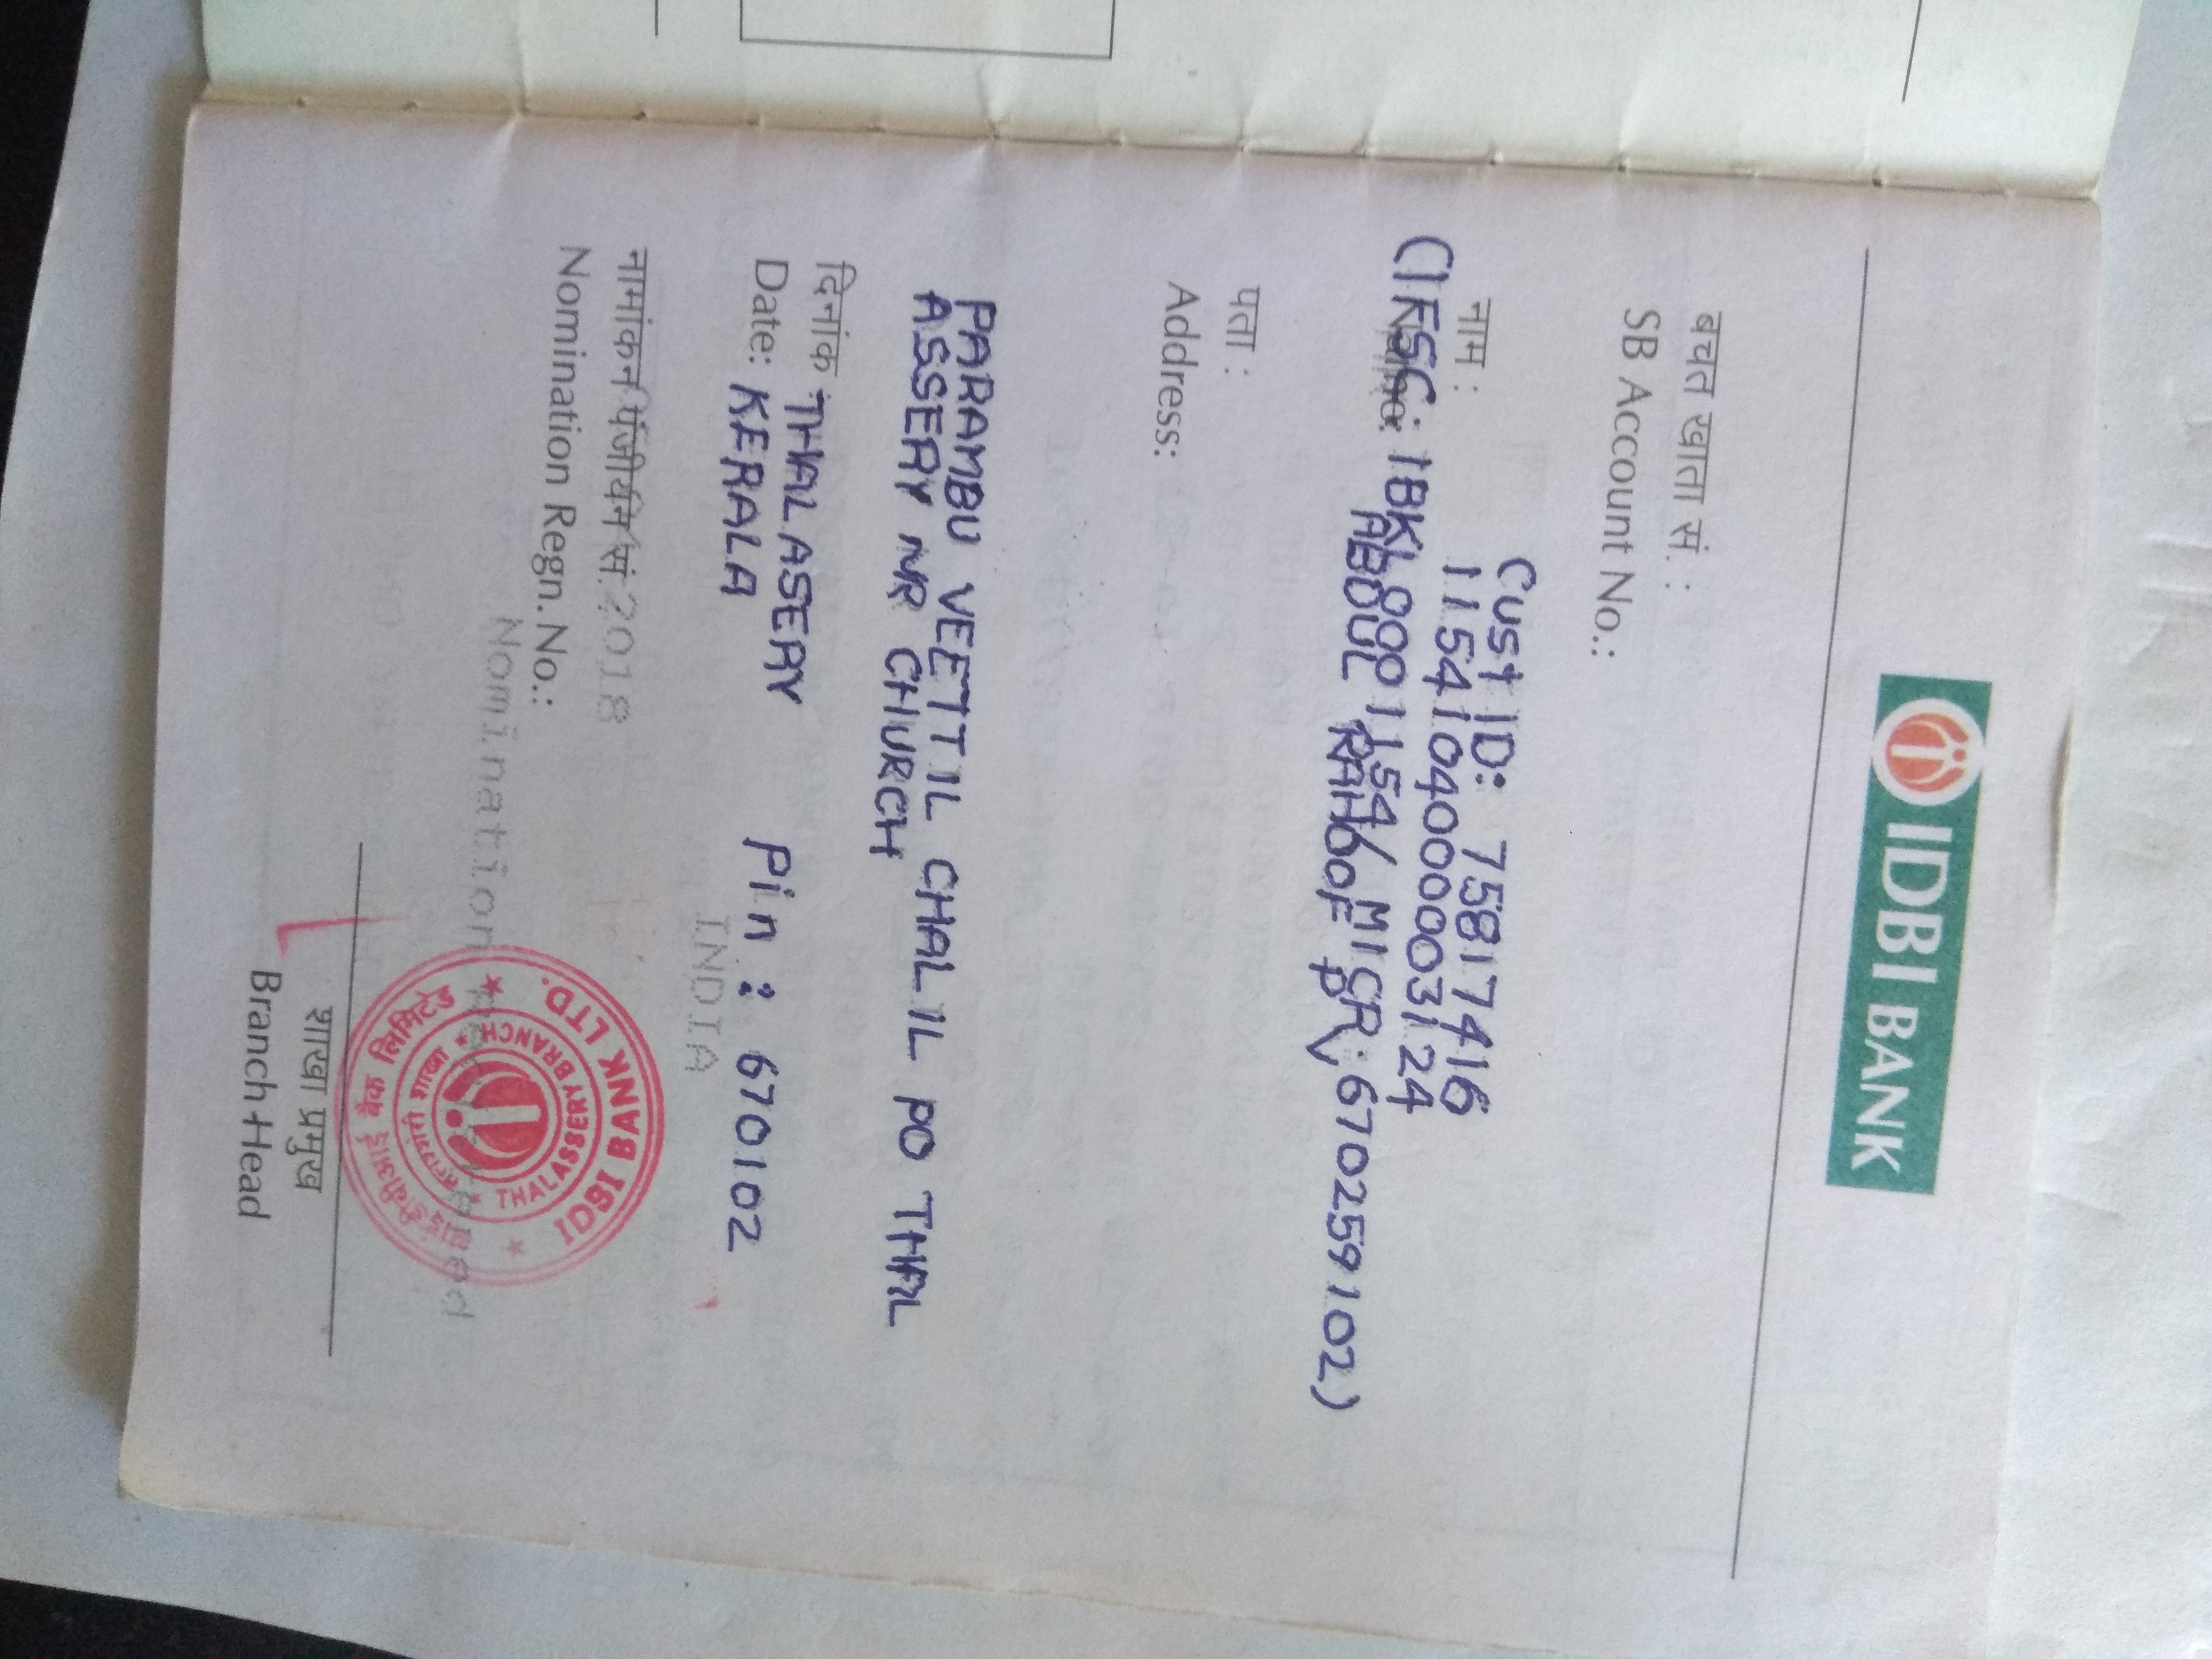 IDBI BANK
बचत खाता सं. :
SB Account No.:
Cust ID: 75817416
1154104000003124
नाम :
(IFSC: IBKL0001154/ MICR: 670259102)
Name:
ABDUL RAHOOF PV
पता :
Address:
PARAMBU VEETTIL CHALIL PO THAL
ASSERY NR CHURCH
दिनांक
THALASERY
Date:
KERALA Pin : 670102
INDIA
नामांकन पंजीयन सं.
2018
Nomination Regn. No.:
Nomination
IDBI BANK LTD.
THALASSERY BRANCH
आईडीबीआई बैंक लिमिटेड
शाखा प्रमुख
Branch Head